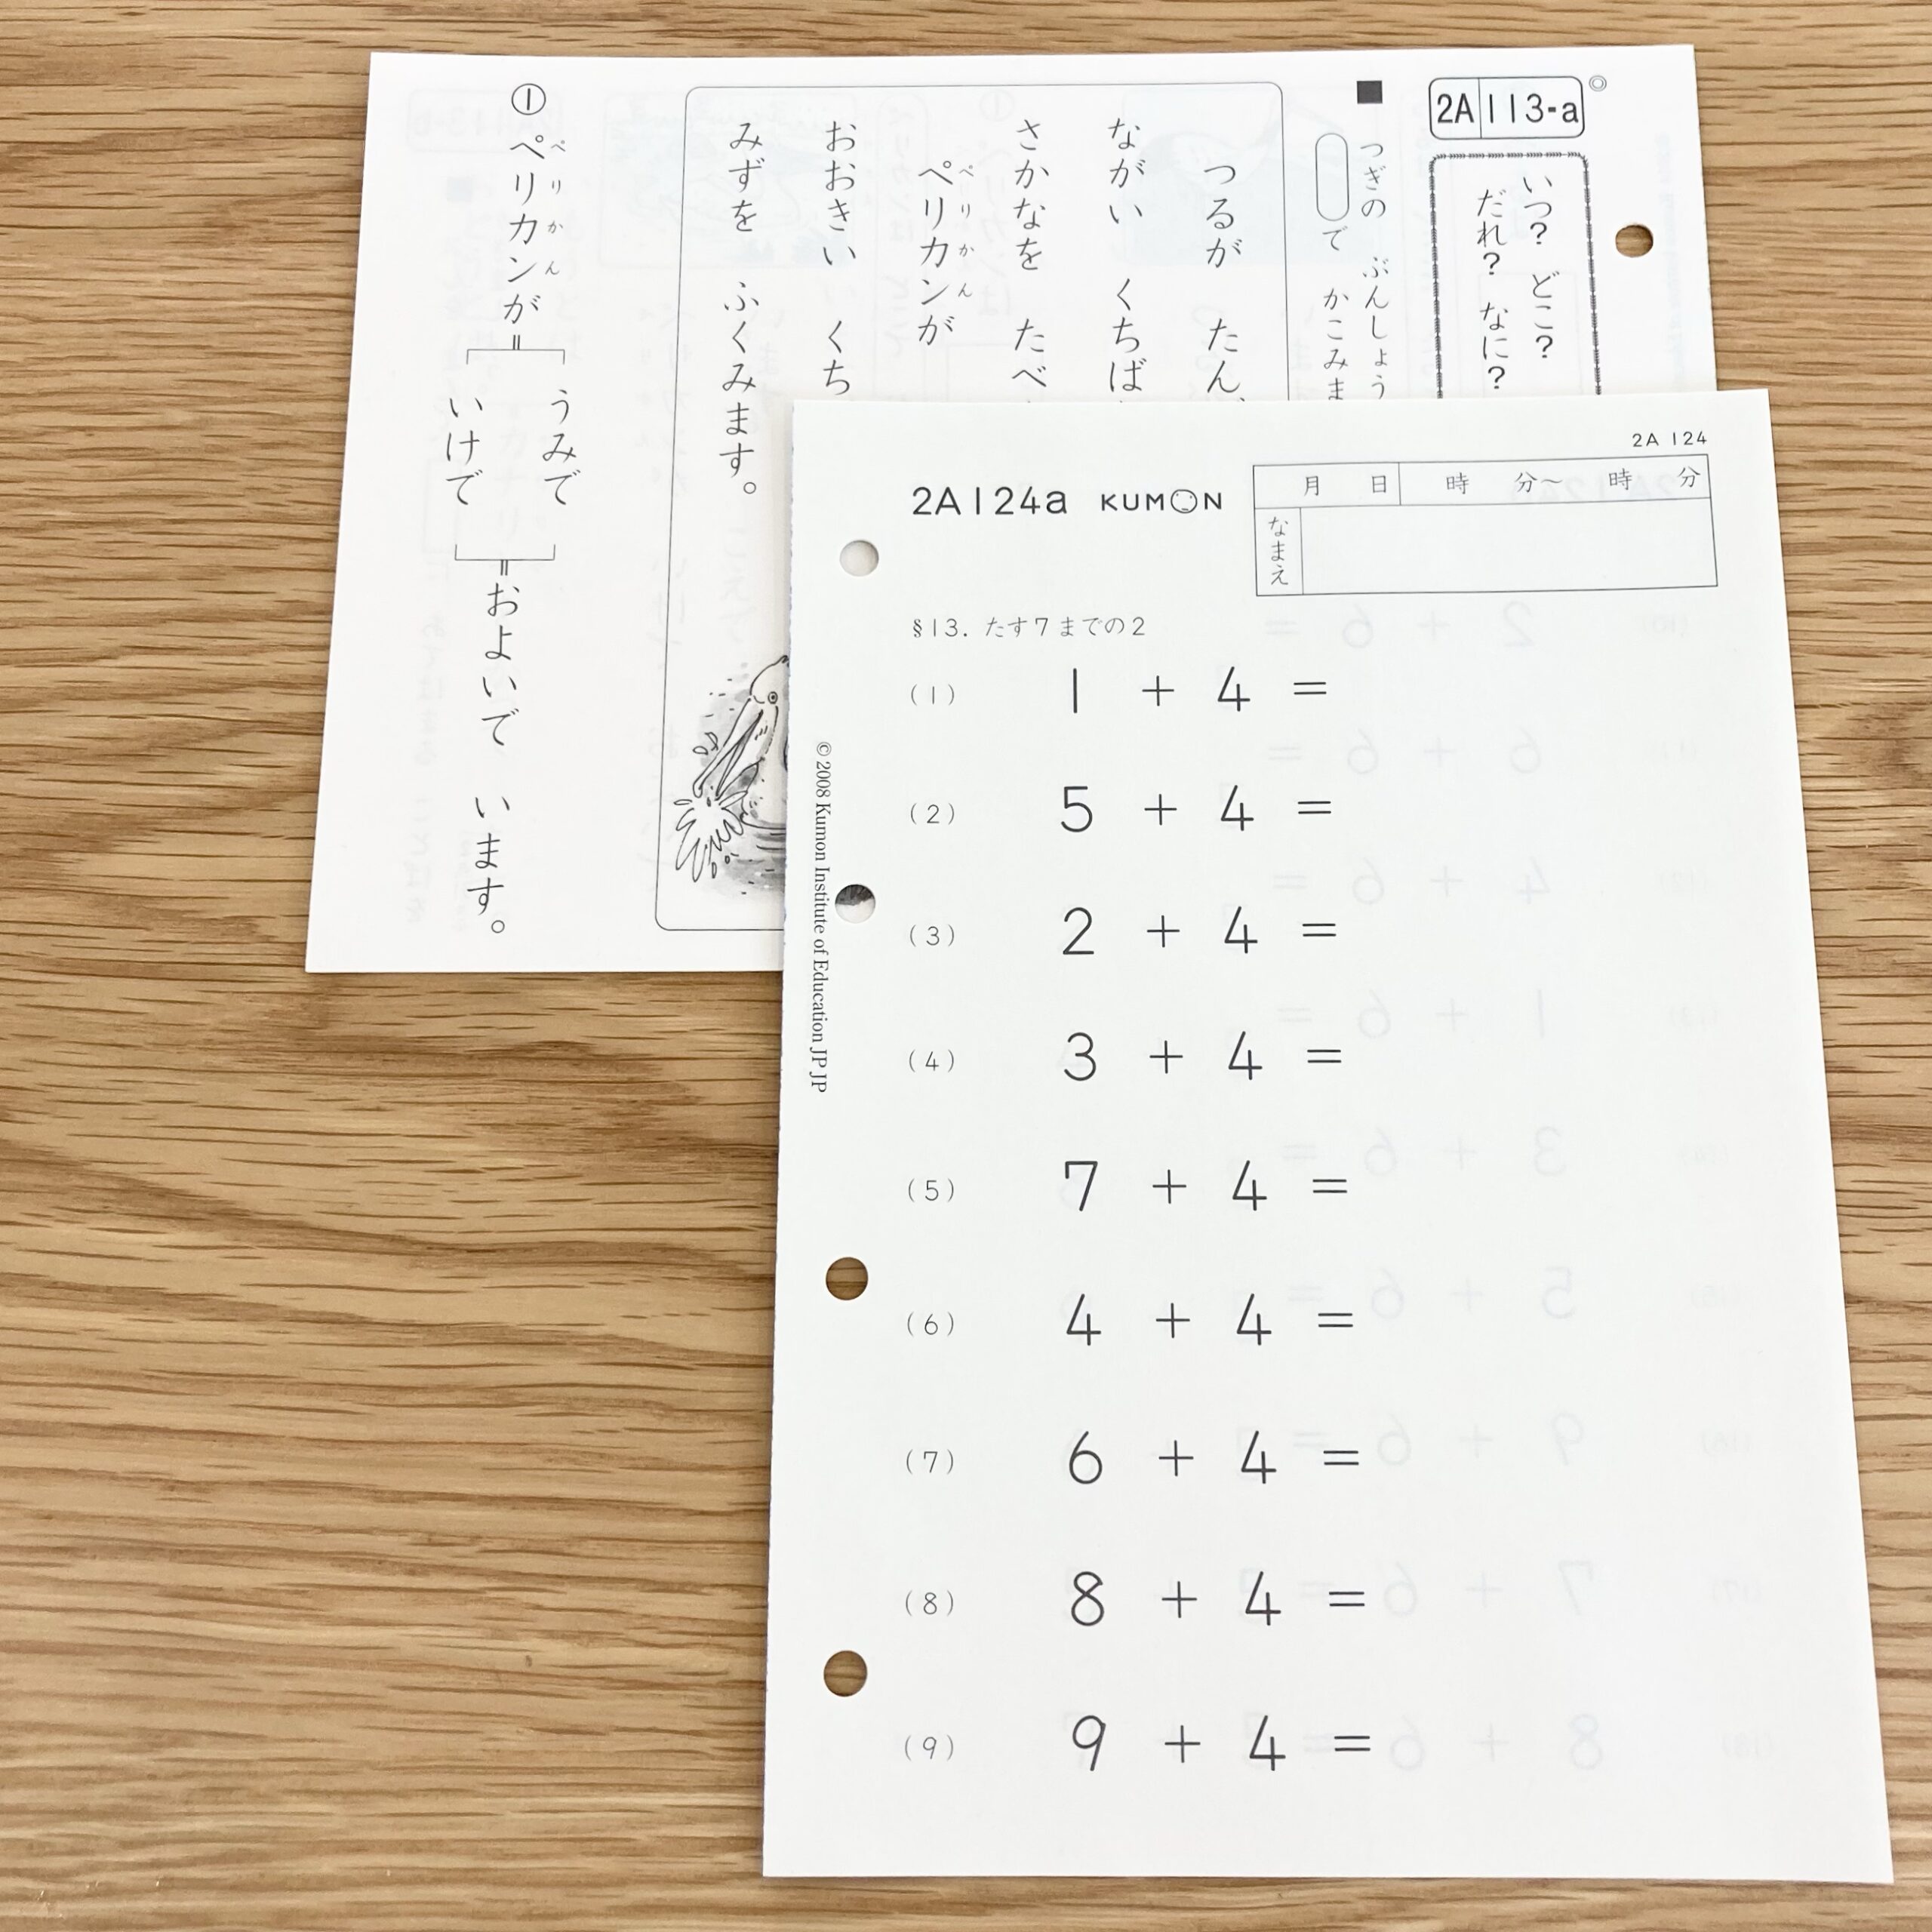 2A 113-a
いつ? どこ?
だれ? なに?
つぎの ぶんしょう
で かこみま
つるが たん
ながい くちば
さかなを たべ
ペリカンが
ぺりかん
おおきい くち
みずを ふくみます。
① ペリカンが
ぺりかん
うみで
いけで
およいで います。
2A 124
2A124a KUMON
月 日 時 分〜 時 分
なまえ
§13. たす7までの2
(1) 1 + 4 =
(2) 5 + 4 =
(3) 2 + 4 =
(4) 3 + 4 =
(5) 7 + 4 =
(6) 4 + 4 =
(7) 6 + 4 =
(8) 8 + 4 =
(9) 9 + 4 =
© 2008 Kumon Institute of Education JP JP